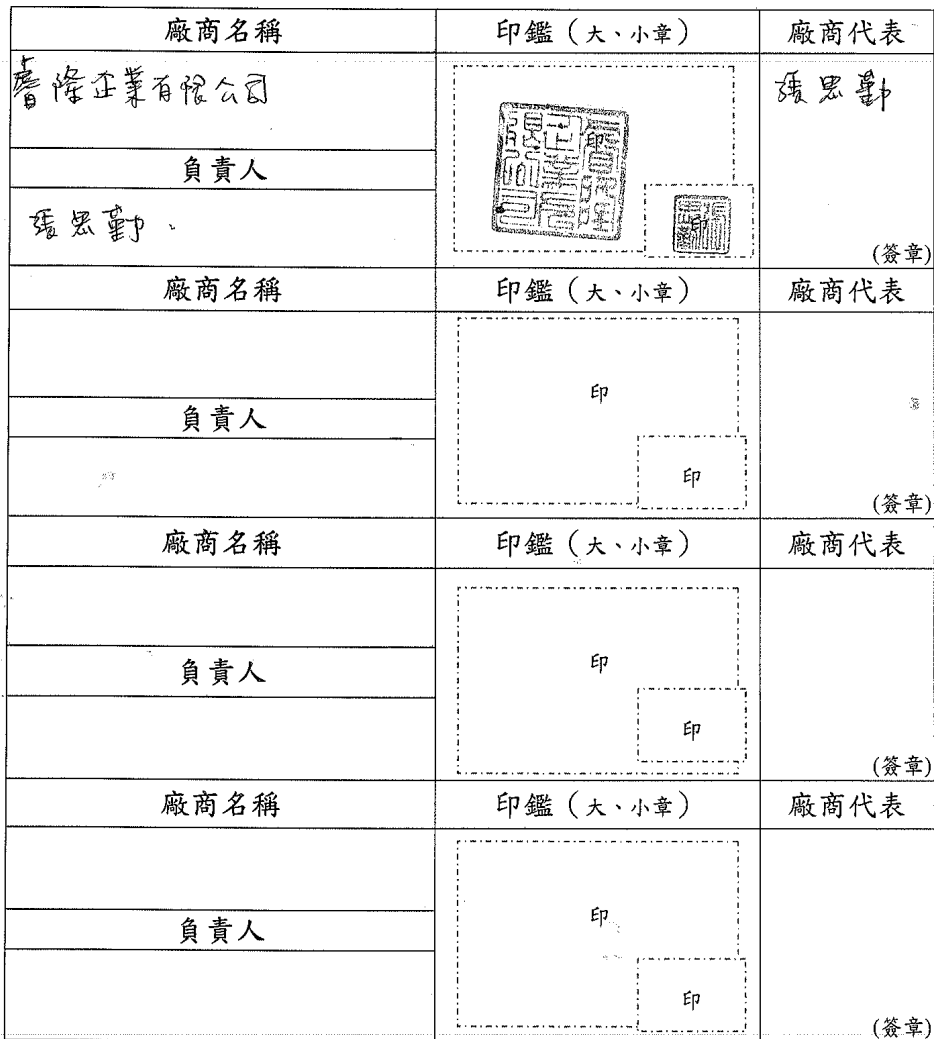 廠商名稱 印鑑（大、小章） 廠商代表
隆企業有限公司
印
張思勤
負責人
張思勤
印
(簽章)
廠商名稱 印鑑（大、小章） 廠商代表
印
負責人
印
(簽章)
廠商名稱 印鑑（大、小章） 廠商代表
印
負責人
印
(簽章)
廠商名稱 印鑑（大、小章） 廠商代表
印
負責人
印
(簽章)